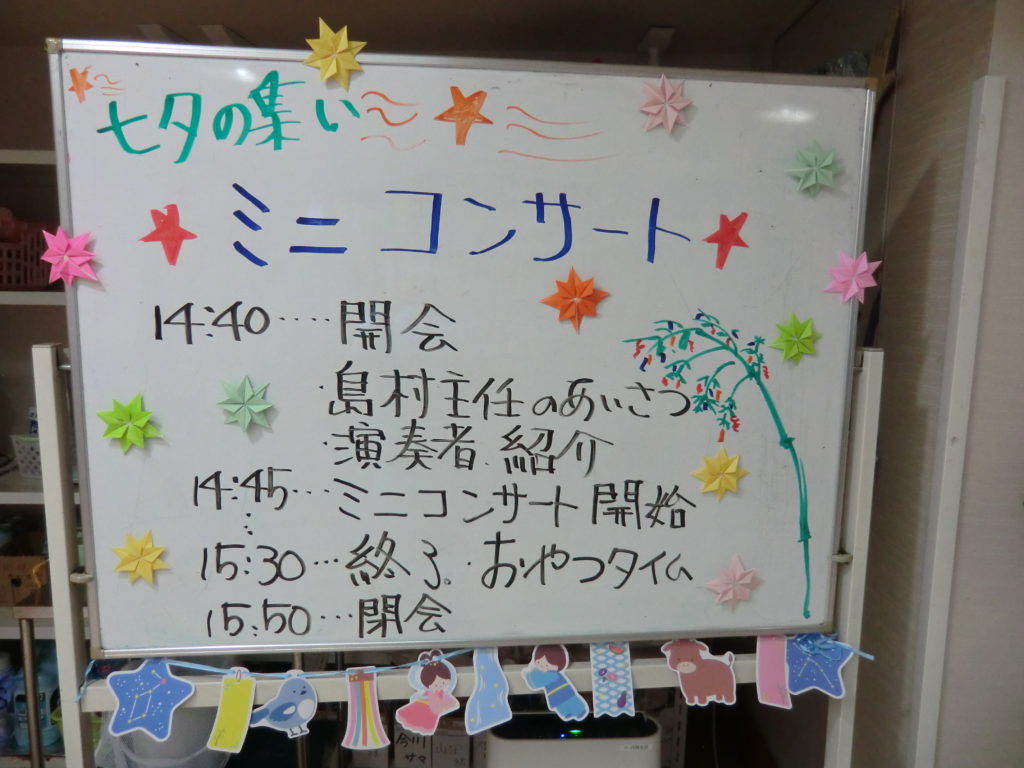 七夕の集い
ミニコンサート
14:40‥‥開会
・島村主任のあいさつ
・演奏者紹介
14:45…ミニコンサート開始
15:30…終了。おやつタイム
15:50…閉会
今川
サマ